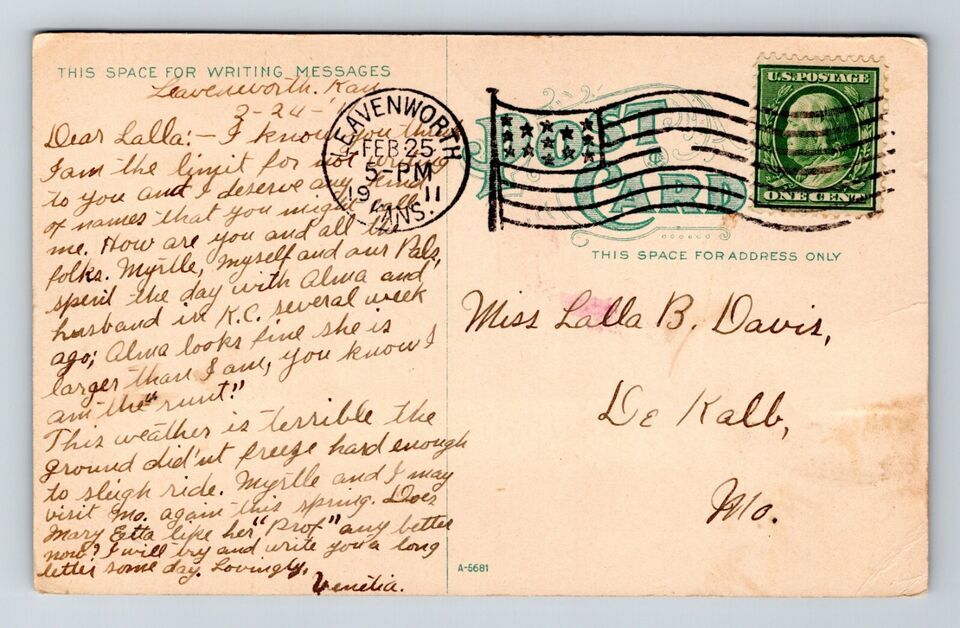 THIS SPACE FOR WRITING MESSAGES
Leavenworth, Kan
2-24-'
Dear Lalla:- I know you think
I am the limit for not writing
to you and I deserve any kind
of names that you might call
me. How are you and all the
folks. Myrtle, myself and our Pals,
spent the day with Alma and
husband in K.C. several week
ago; Alma looks fine she is
larger than I am, you know I
am the "runt!"
This weather is terrible the
ground did'nt freeze hard enough
to sleigh ride. Myrtle and I may
visit Mo. again this spring. Does
Mary Etta like her "Prof" any better
now? I will try and write you a long
letter some day. Lovingly,
Venetia.
LEAVENWORTH
FEB 25
5-PM
19 11
KANS.
POST
CARD
U.S. POSTAGE
ONE CENT
THIS SPACE FOR ADDRESS ONLY
Miss Lalla B. Davis,
De Kalb,
Mo.
A-5681